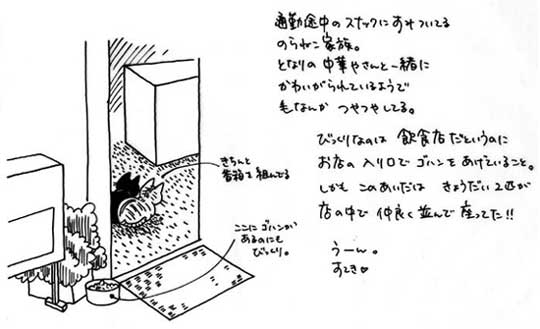 通勤途中のスナックにすみついてる
のらねこ家族。
となりの中華やさんと一緒に
かわいがられているようで
毛なんか つやつやしてる。
びっくりなのは 飲食店だというのに
お店の入り口でゴハンをあげていること。
しかも このあいだは きょうだい2匹が
店の中で 仲良く並んで 座ってた!!
うーん。
すてき♡
きちんと
香箱を組んでる
ここにゴハンが
あるのにも
びっくり。